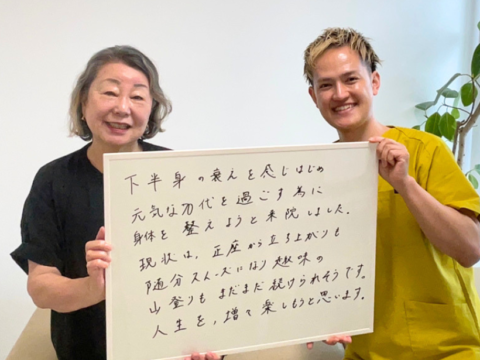 下半身の衰えを感じはじめ
元気な70代を過ごす為に
身体を整えようと来院しました。
現状は、正座から立ち上がりも
随分スムーズになり趣味の
山登りもまだまだ続けられそうです。
人生を、増々楽しもうと思います。